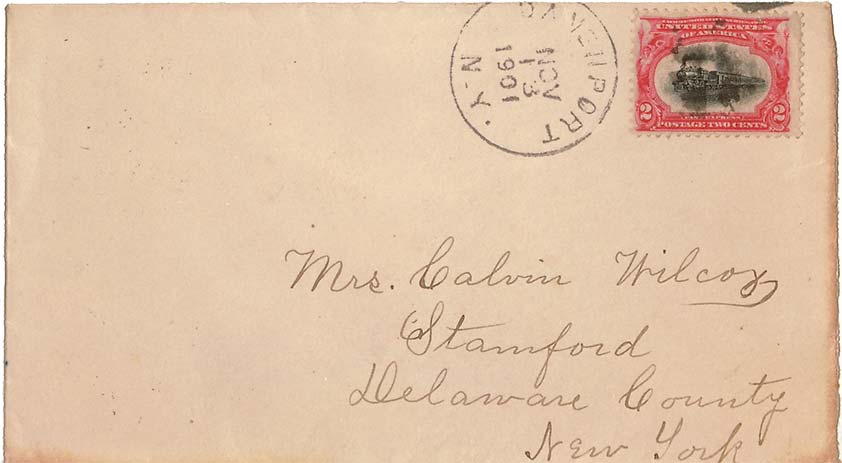 DAVENPORT
N.Y.
NOV
13
1901
COMMEMORATIVE SERIES 1901
UNITED STATES
OF AMERICA
2 2
FAST EXPRESS
POSTAGE TWO CENTS
Mrs. Calvin Wilcox
Stamford
Delaware County
New York